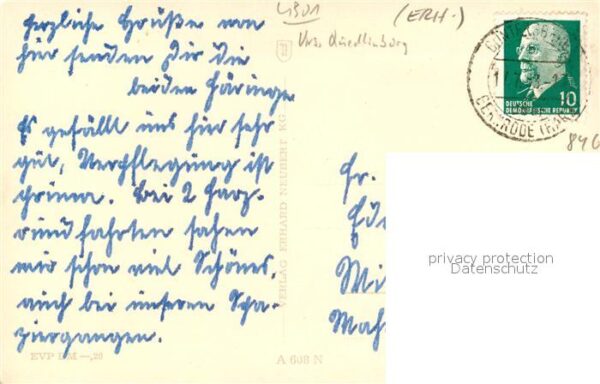 Herzliche Grüße von
hier senden Dir die
beiden Häringe
Es gefällt uns hier sehr
gut, Verpflegung ist
prima. Bei 2 Harz-
rundfahrten sahen
wir schon viel Schönes,
auch bei unseren Spa-
ziergängen.
EVP DM —,20
VERLAG ERHARD NEUBERT KG
A 608 N
(ERH.)
Quedlinburg
DEUTSCHE
DEMOKRATISCHE REPUBLIK
10
GERNRODE (HARZ)
Fr.
Mi
Mah
privacy protection
Datenschutz